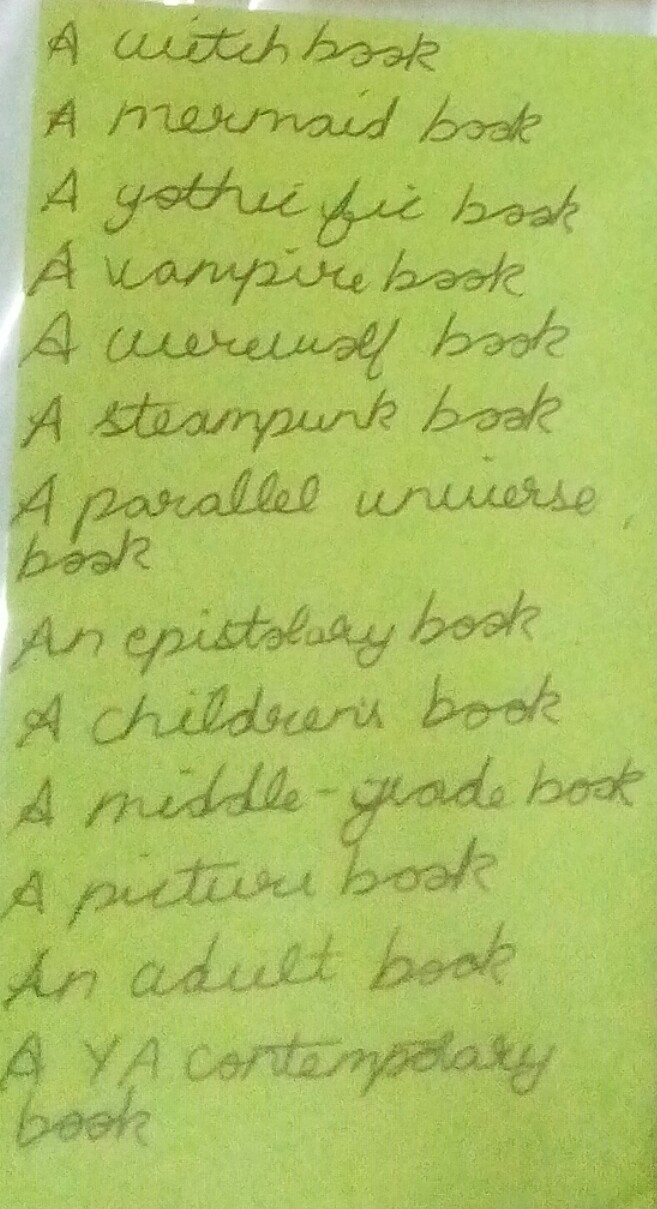 A witch book
A mermaid book
A gothic fic book
A vampire book
A werewolf book
A steampunk book
A parallel universe
book
An epistolary book
A children's book
A middle-grade book
A picture book
An adult book
A YA contemporary
book